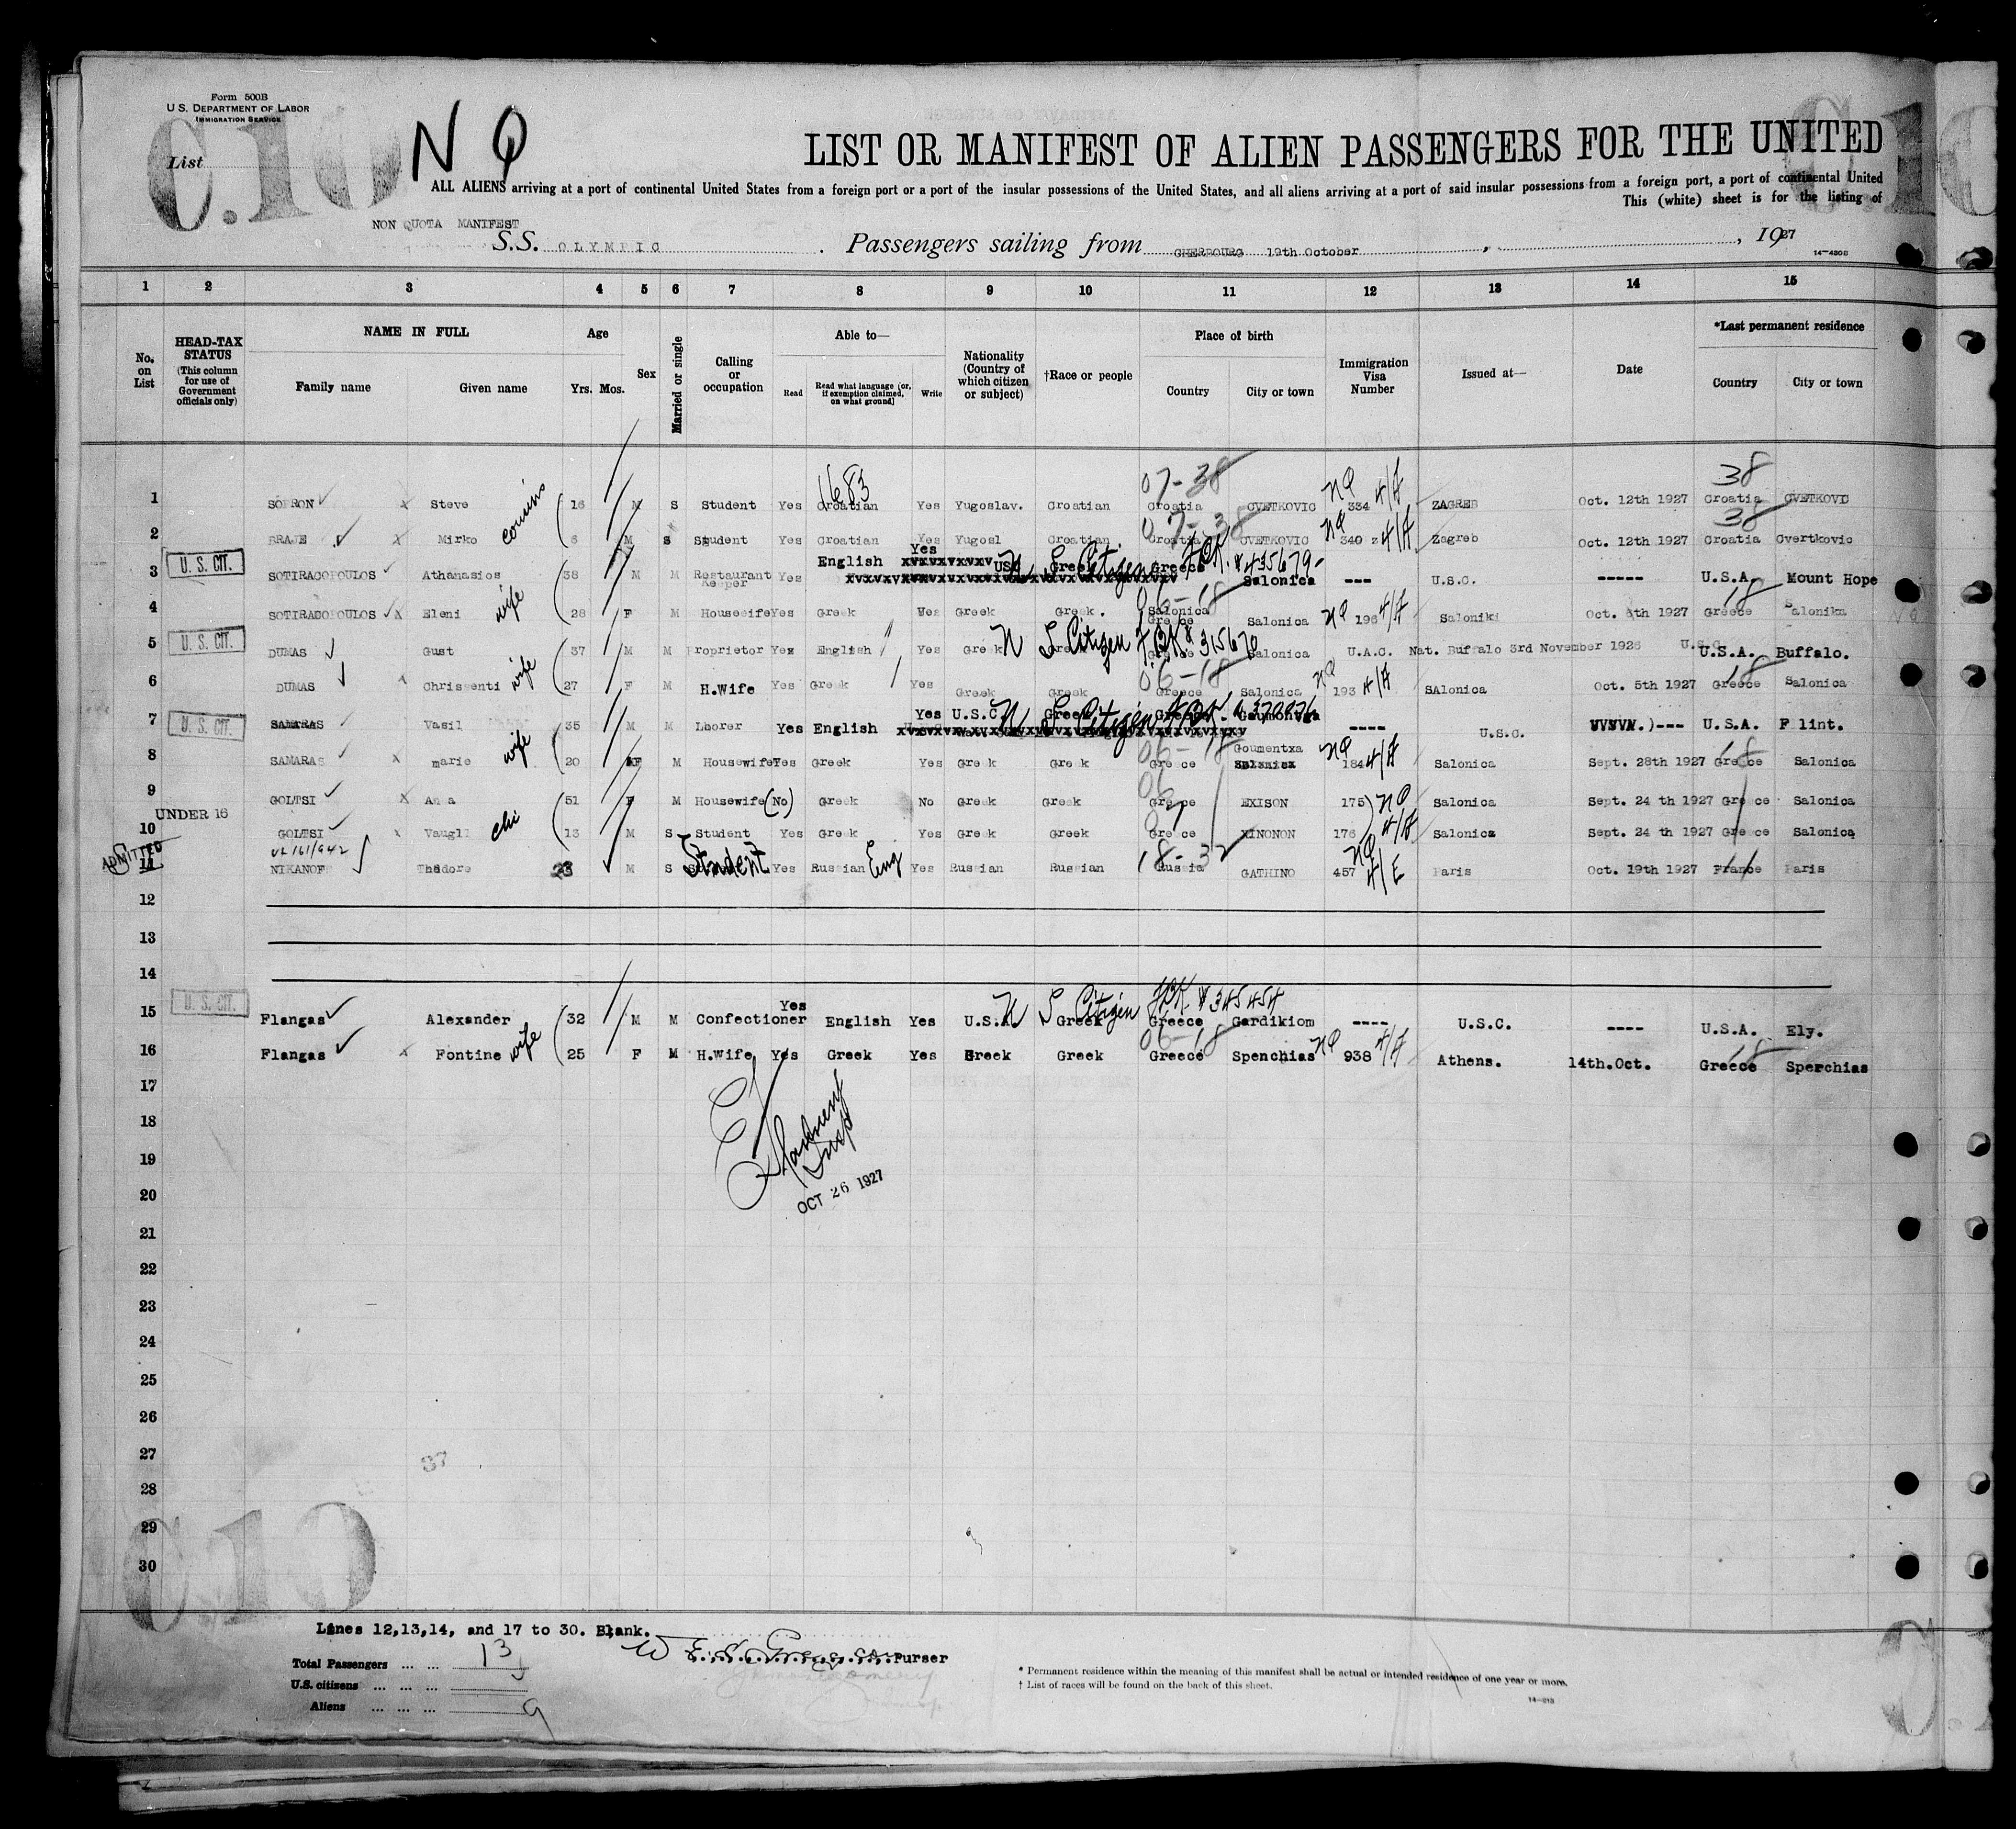 Form 500B
U. S. DEPARTMENT OF LABOR
IMMIGRATION SERVICE
C.10
N Q
List
LIST OR MANIFEST OF ALIEN PASSENGERS FOR THE UNITED
ALL ALIENS arriving at a port of continental United States from a foreign port or a port of the insular possessions of the United States, and all aliens arriving at a port of said insular possessions from a foreign port, a port of continental United
This (white) sheet is for the listing of
NON QUOTA MANIFEST
S.S. OLYMPIC. Passengers sailing from CHERBOURG 19th October, 1927
14-430B
1 2 3 4 5 6 7 8 9 10 11 12 13 14 15
No. on List
HEAD-TAX STATUS (This column for use of Government officials only)
NAME IN FULL Family name Given name
Age Yrs. Mos.
Sex
Married or single
Calling or occupation
Able to— Read Read what language [or, if exemption claimed, on what ground] Write
Nationality (Country of which citizen or subject)
†Race or people
Place of birth Country City or town
Immigration Visa Number
Issued at—
Date
*Last permanent residence Country City or town
1683 07-38 NQ 4/A 38
1 Steve cousins 16 M S Student Yes Croatian Yes Yugoslav. Croatian Croatia CVETKOVIC 334 ZAGREB Oct. 12th 1927 Croatia CVETKOVIC
07-38 NQ 4/A 38
2 Mirko 6 M S Student Yes Croatian Yes Yugosl Croatian Croatia CVETKOVIC 340 Zagreb Oct. 12th 1927 Croatia Cvertkovic
U. S. CIT. English Yes
3 SOTIRACOPOULOS Athanasios 38 M M Restaurant Keeper Yes USA Greek Greece Salonica --- U.S.C. ----- U.S.A. Mount Hope
06-18 18
4 SOTIRACOPOULOS Eleni wife 28 F M Housewife Yes Greek Yes Greek Greek. Salonica Greece Salonica NQ 196 4/A Saloniki Oct. 6th 1927 Greece Salonika
U. S. CIT.
5 DUMAS Gust 37 M M Proprietor Yes English Yes Greek U S Citizen 315670 Greece Salonica U.A.C. Nat. Buffalo 3rd November 1926 U.S.A. Buffalo.
06-18 NQ 18
6 DUMAS Chrissenti wife 27 F M H.Wife Yes Greek Yes Greek Greek Greece Salonica 193 4/A SAlonica Oct. 5th 1927 Greece Salonica
U. S. CIT.
7 SAMARAS Vasil 35 M M Lborer Yes English Yes U.S.C Greek Greece ---- U.S.C. --- U.S.A. Flint.
06-18 18
8 SAMARAS marie wife 20 F M Housewife Yes Greek Yes Greek Greek Greece Goumentxa NQ 184 4/A Salonica Sept. 28th 1927 Greece Salonica
06
9 GOLTSI Ana 51 F M Housewife (No) Greek No Greek Greek Greece EXISON 175 NQ Salonica Sept. 24 th 1927 Greece Salonica
UNDER 16
10 GOLTSI chi 13 M S Student Yes Greek Yes Greek Greek Greece XINONON 176 4/A Salonica Sept. 24 th 1927 Greece Salonica
ADMITTED 18-32 NQ
11 NIKANOF Thedore 23 M S Student Yes Russian Eng Yes Russian Russian Russia GATHINO 457 4/E Paris Oct. 19th 1927 France Paris
12
13
14
U. S. CIT. Yes U S Citizen 345454
15 Flangas Alexander 32 M M Confectioner English Yes U.S.A. Greek Greece Gardikiom ---- U.S.C. ---- U.S.A. Ely.
06-18 18
16 Flangas Fontine wife 25 F M H.Wife Yes Greek Yes Greek Greek Greece Spenchias NQ 938 4/A Athens. 14th.Oct. Greece Sperchias
17
18
19
20
OCT 26 1927
21
22
23
24
25
26
27
37
28
29
30
C.10
Lines 12,13,14, and 17 to 30. Blank.
Purser
Total Passengers ... ... 13
U.S. citizens ... ... ...
Aliens ... ... ... 9
* Permanent residence within the meaning of this manifest shall be actual or intended residence of one year or more.
† List of races will be found on the back of this sheet.
14-213